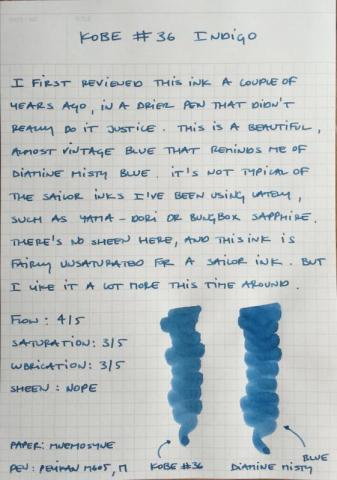 KOBE #36 INDIGO
I FIRST REVIEWED THIS INK A COUPLE OF
YEARS AGO, IN A DRIER PEN THAT DIDN'T
REALLY DO IT JUSTICE. THIS IS A BEAUTIFUL,
ALMOST VINTAGE BLUE THAT REMINDS ME OF
DIAMINE MISTY BLUE. IT'S NOT TYPICAL OF
THE SAILOR INKS I'VE BEEN USING LATELY,
SUCH AS YAMA-DORI OR BUNGBOX SAPPHIRE.
THERE'S NO SHEEN HERE, AND THIS INK IS
FAIRLY UNSATURATED FOR A SAILOR INK. BUT
I LIKE IT A LOT MORE THIS TIME AROUND.
FLOW: 4/5
SATURATION: 3/5
LUBRICATION: 3/5
SHEEN: NOPE
PAPER: MNEMOSYNE
PEN: PELIKAN M605, M
KOBE #36
DIAMINE MISTY BLUE